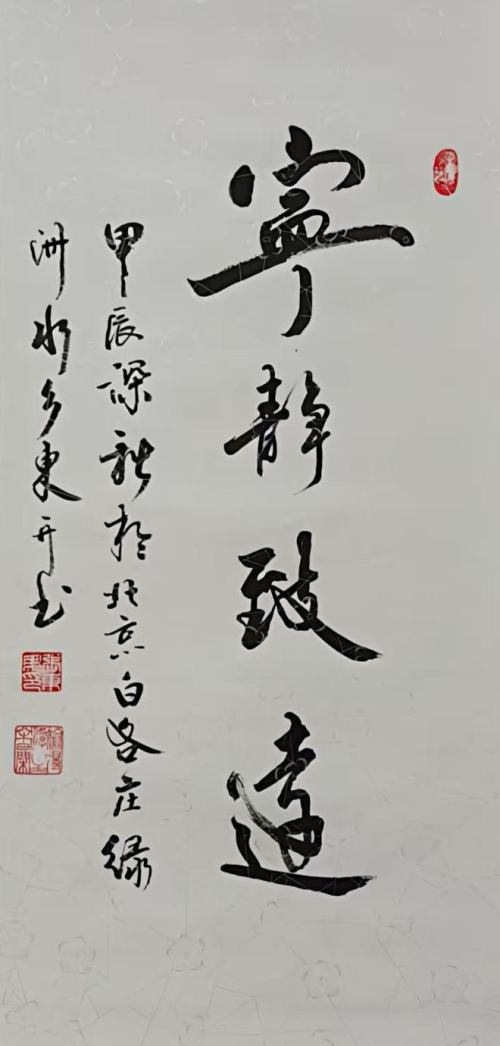 寧靜致遠
甲辰深秋於北京白各庄绿
洲水乡東升书